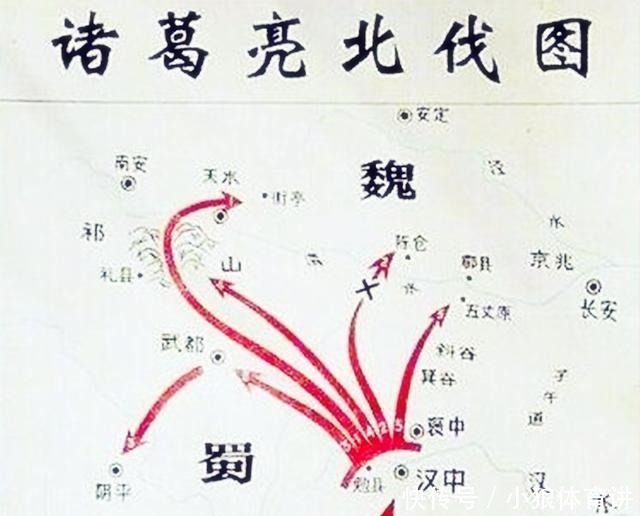 诸葛亮北伐图
安定
南安
天水
街亭
魏
泾
水
祁
山
礼县
陈仓
渭
水
郿县
京兆
长安
五丈原
武都
斜谷
箕谷
子
午
道
褒中
蜀
阴平
勉县
汉中
汉
水
3
3
1
4
2
5
快传号 / 小狼体育讲